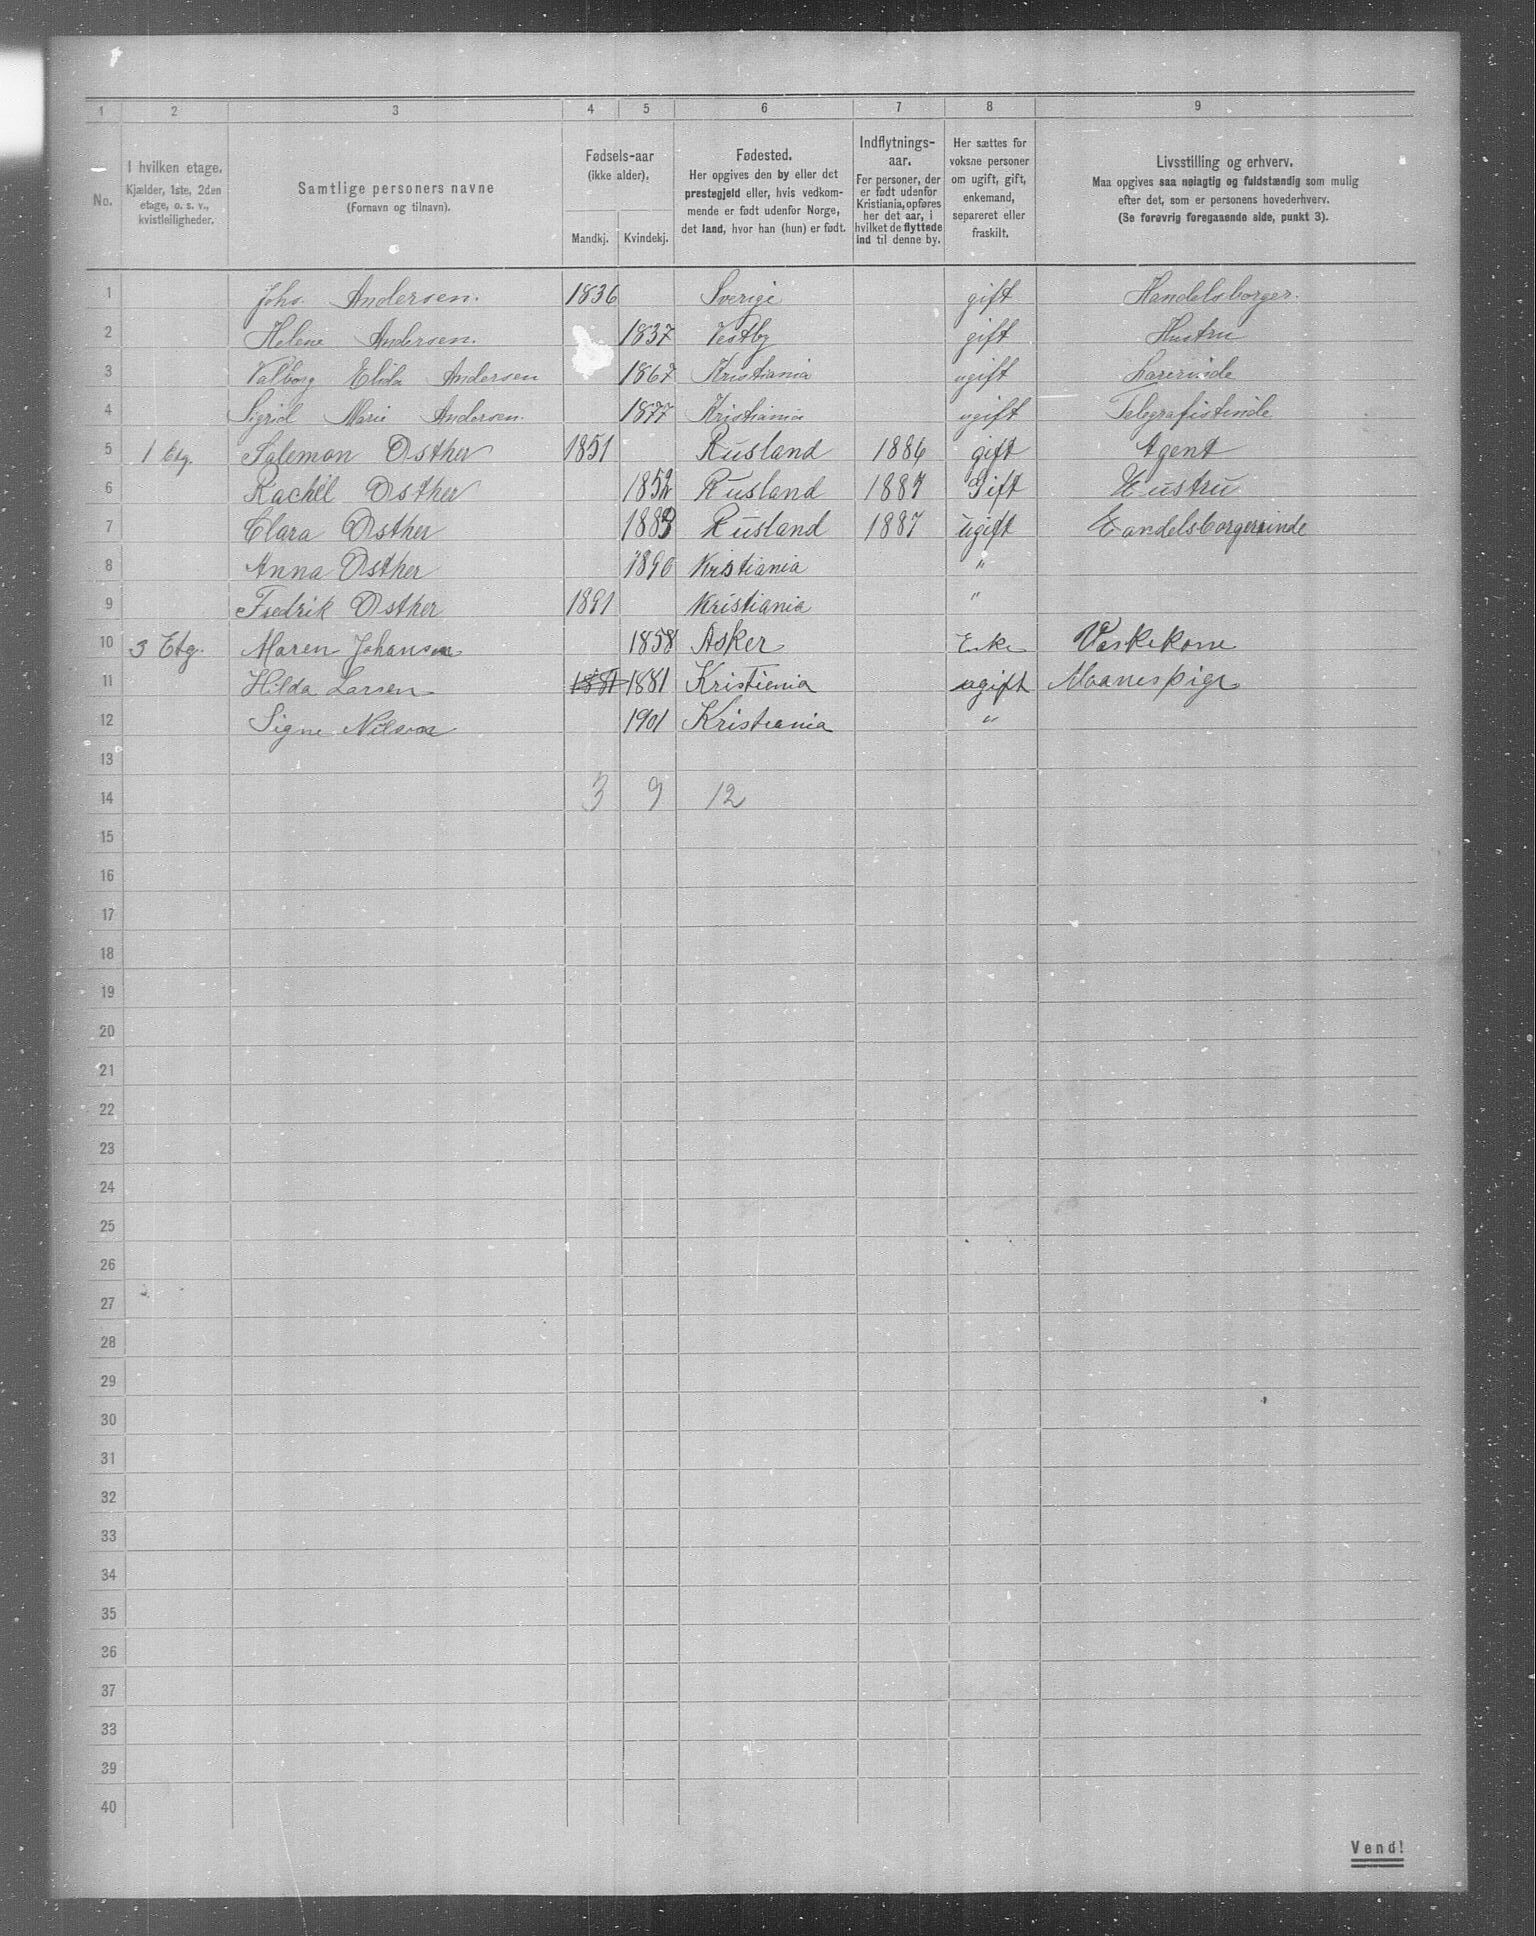 1 2 3 4 5 6 7 8 9
No.
I hvilken etage.
Kjælder, 1ste, 2den
etage, o. s. v.,
kvistleiligheder.
Samtlige personers navne
(Fornavn og tilnavn).
Fødsels-aar
(ikke alder).
Mandkj. Kvindekj.
Fødested.
Her opgives den by eller det
prestegjeld eller, hvis vedkom-
mende er født udenfor Norge,
det land, hvor han (hun) er født.
Indflytnings-
aar.
For personer, der
er født udenfor
Kristiania, opføres
her det aar, i
hvilket de flyttede
ind til denne by.
Her sættes for
voksne personer
om ugift, gift,
enkemand,
separeret eller
fraskilt.
Livsstilling og erhverv.
Maa opgives saa nøiagtig og fuldstændig som mulig
efter det, som er personens hovederhverv.
(Se forøvrig foregaaende side, punkt 3).
1 Johs. Andersen. 1836 Sverige gift Handelsborger.
2 Helene Andersen. 1837 Vestby gift Hustru
3 Valborg Elida Andersen 1867 Kristiania ugift Lærerinde
4 Sigrid Marie Andersen. 1877 Kristiania ugift Telegrafistinde
5 1 Etg. Salemon Osther 1851 Rusland 1886 gift Agent
6 Rachel Osther 1852 Rusland 1887 Gift Hustru
7 Clara Osther 1883 Rusland 1887 ugift Handelsborgerinde
8 Anna Osther 1890 Kristiania "
9 Fredrik Osther 1891 Kristiania "
10 3 Etg. Maren Johansen 1858 Asker Enke Vaskekone
11 Hilda Larsen 1881 1881 Kristiania ugift Maanespige
12 Signe Nilsen 1901 Kristiania "
13
14 3 9 12
15
16
17
18
19
20
21
22
23
24
25
26
27
28
29
30
31
32
33
34
35
36
37
33
39
40
Vend!